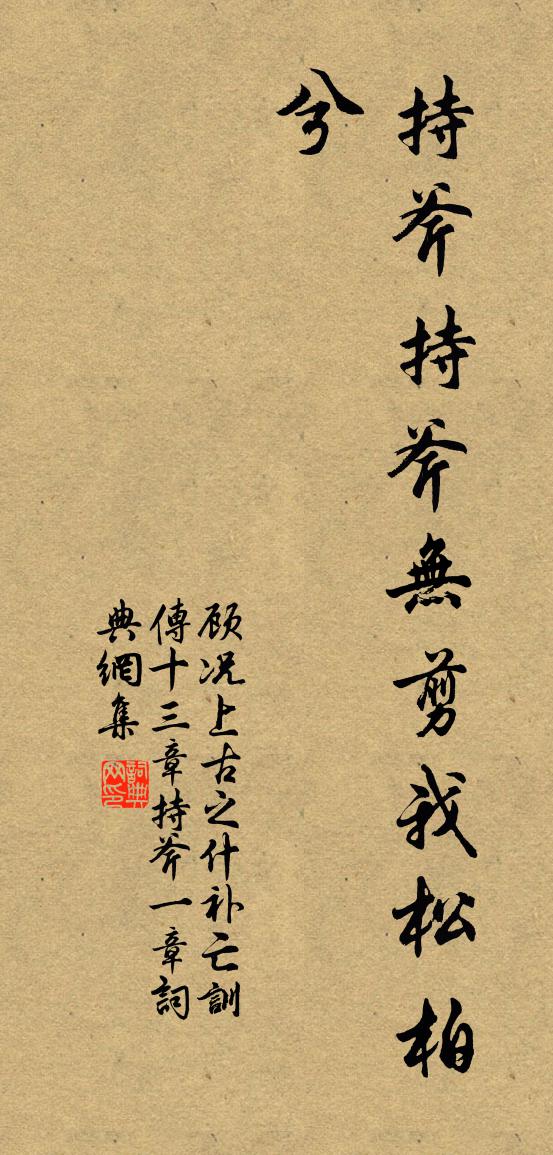 持斧持斧無剪我松柏
兮
顾况上古之什补亡訓
傳十三章持斧一章詞
典網集
詞典
网印